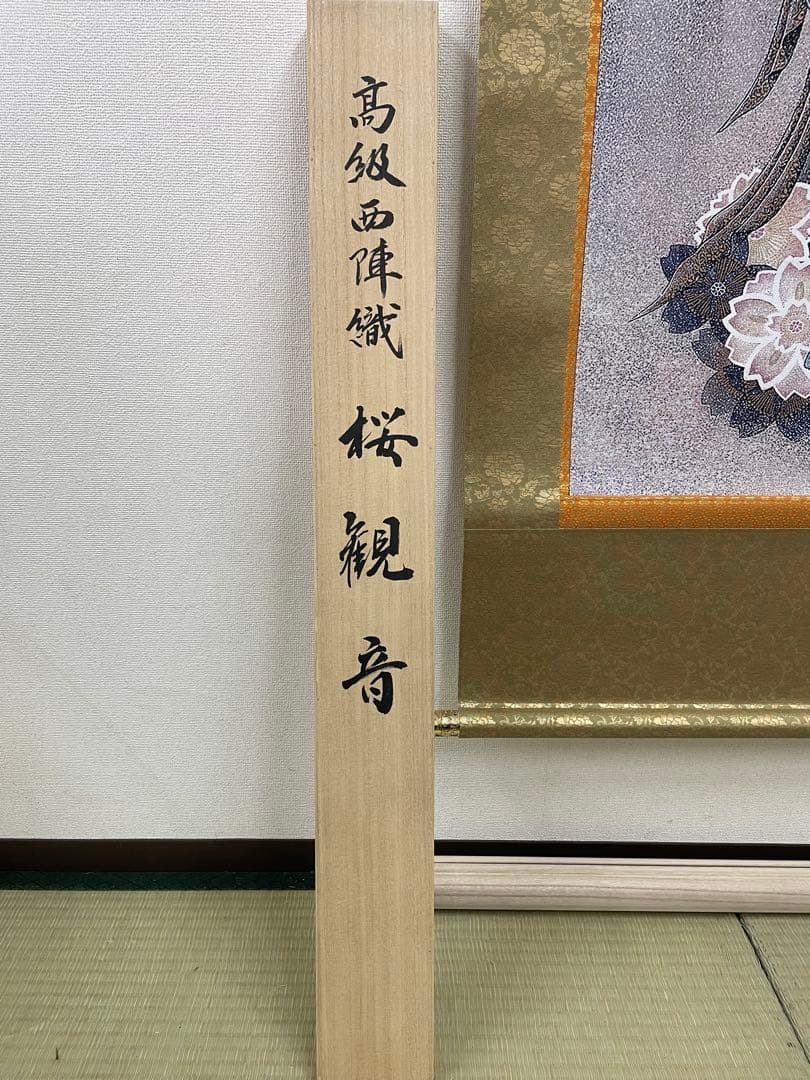 髙級西陣織 桜観音